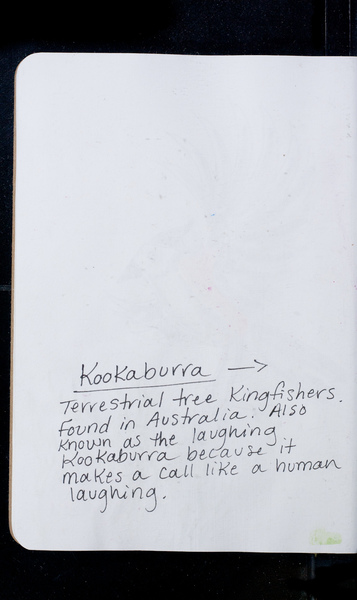 Kookaburra →
Terrestrial tree Kingfishers.
Found in Australia. Also
known as the laughing
Kookaburra because it
makes a call like a human
laughing.